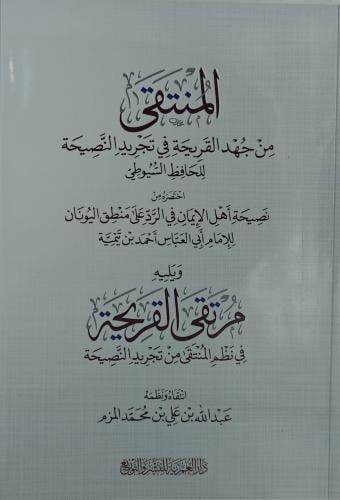 المُنتَقَى
مِنْ جُهْدِ القَرِيحَةِ فِي تَجْرِيدِ النَّصِيحَة
لِلحَافِظِ السُّيُوطِيّ
اخْتَصَرَهُ مِنْ
نَصِيحَةِ أَهْلِ الإِيمَانِ فِي الرَّدِّ عَلَى مَنْطِقِ اليُونَان
لِلإِمَامِ أَبِي العَبَّاسِ أَحْمَدَ بْن تَيْمِيَّة
وَيَلِيهِ
مُرتَقَى القَرِيحَةِ
فِي نَظْمِ المُنْتَقَى مِنْ تَجْرِيدِ النَّصِيحَة
انْتَقَاهُ وَنَظَمَهُ
عَبْدُ اللهِ بْن عَلِي بْن مُحَمَّد المزم
دَارُ العُمَرِيَّةِ لِلنَّشْرِ وَالتَّوْزِيعِ